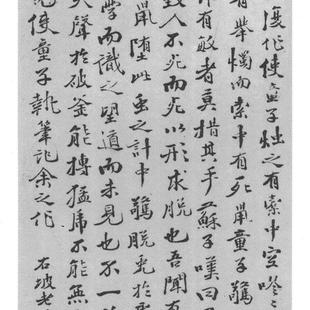 復作使童子燭之有橐中空嘐〻
有舉燭而索中有死鼠童子驚
有敏者莫措其手蘇子嘆曰
致人不死而死以形求脫也吾聞有
鼠墮此蟲之計中驚脫兔於
學而識之望道而未見也不一
失聲於破釜能搏猛虎不能無
使童子執筆記余之作
右坡老